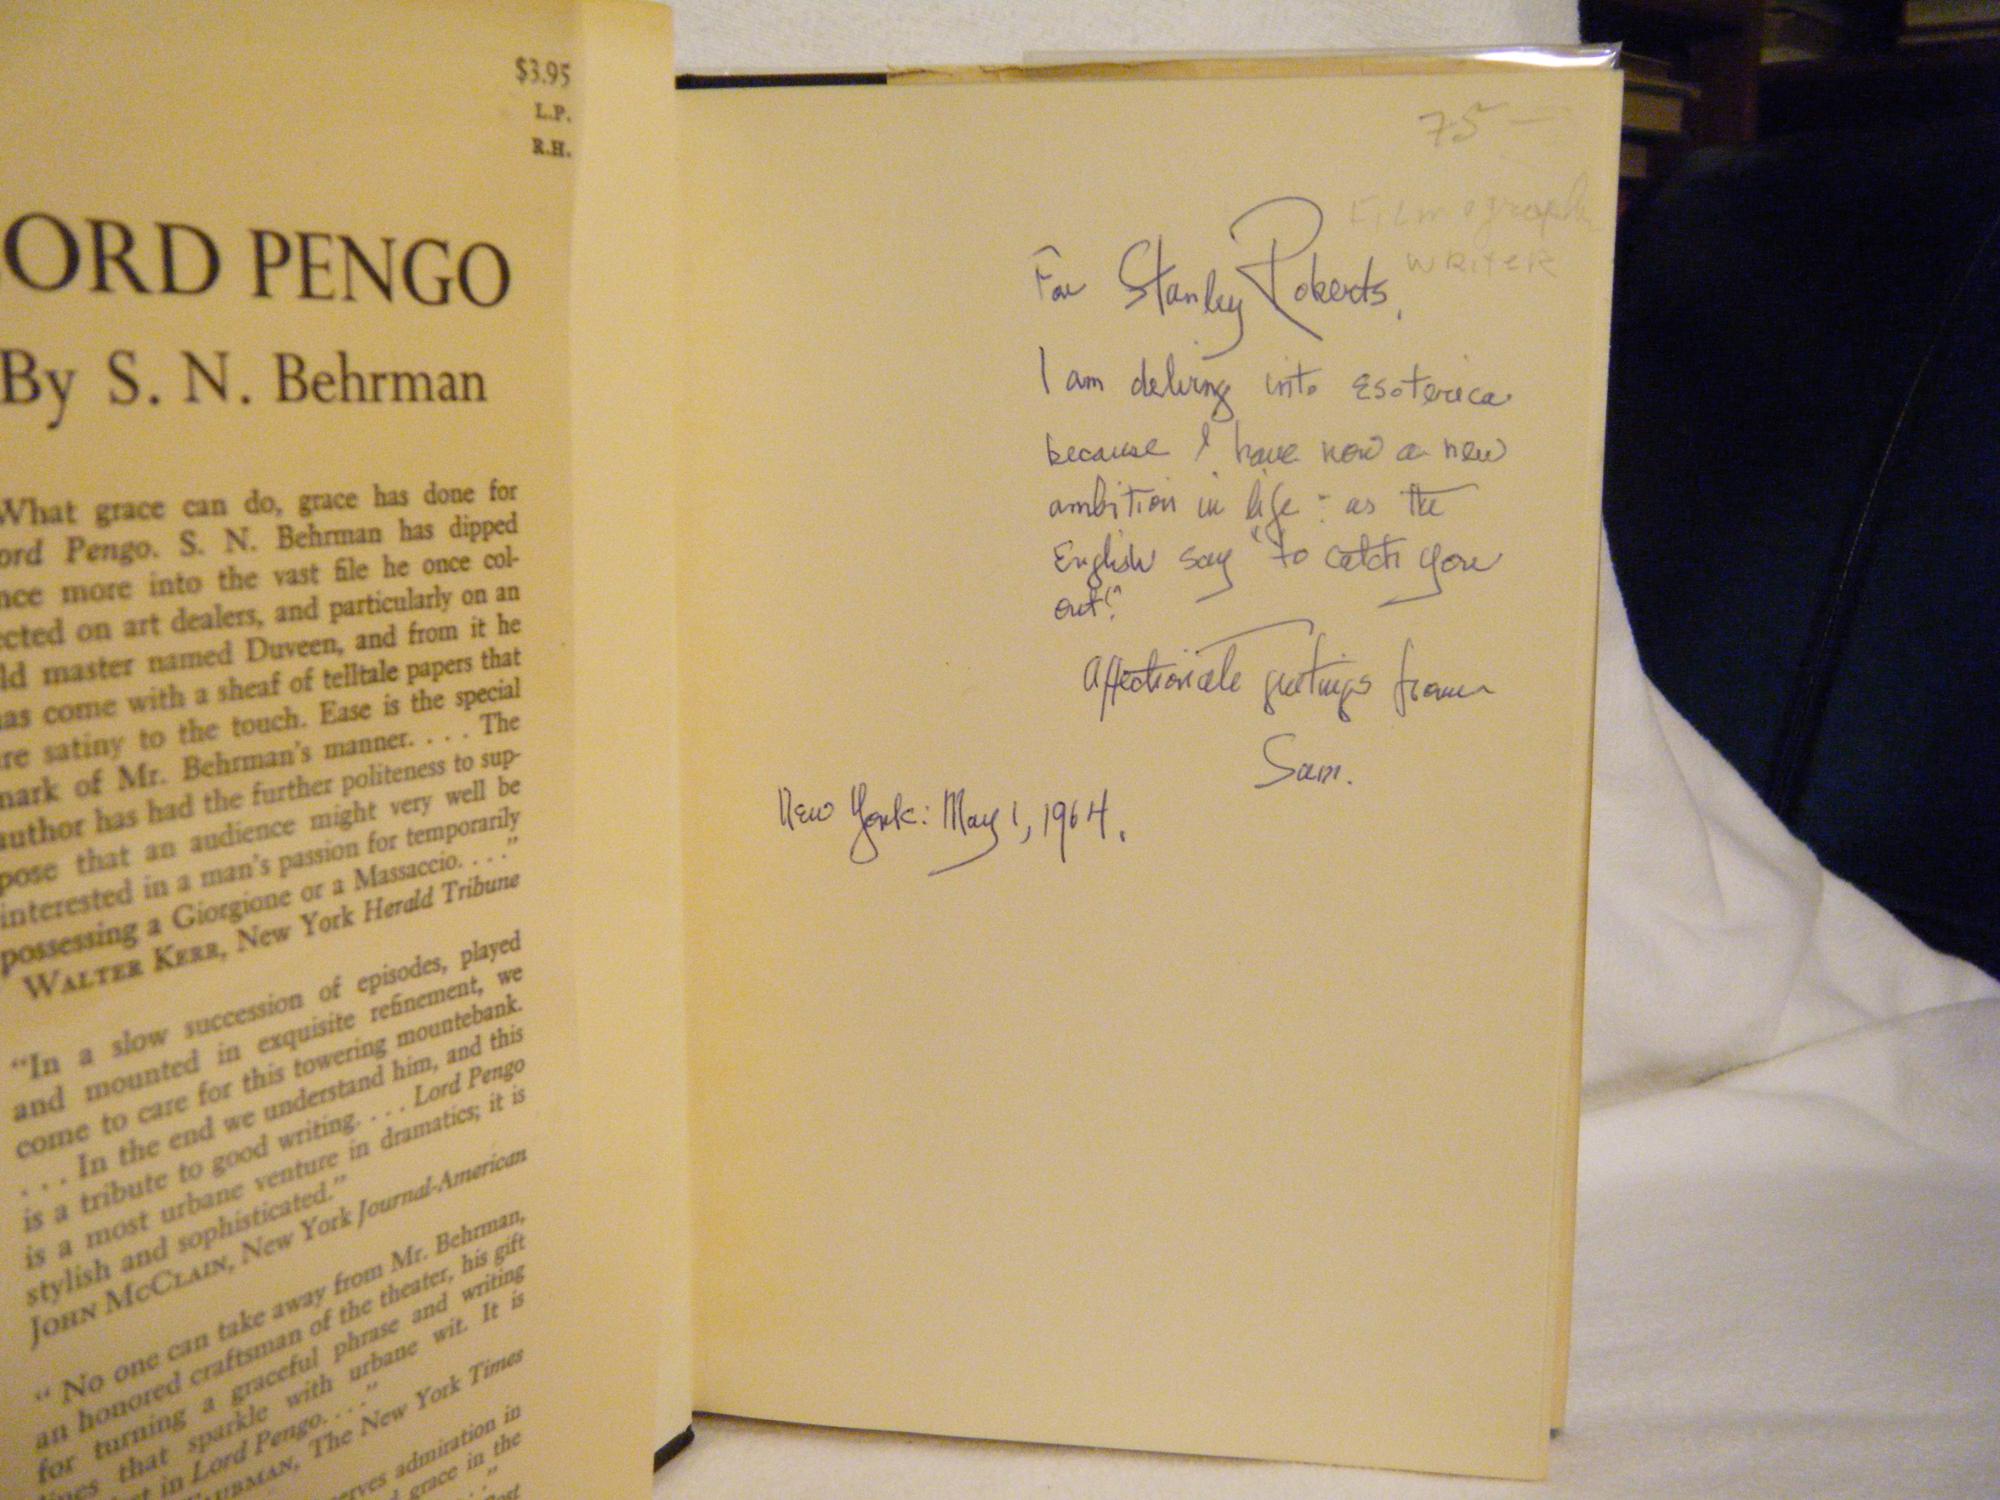 $3.95
L.P.
R.H.
ORD PENGO
By S. N. Behrman
What grace can do, grace has done for
ord Pengo. S. N. Behrman has dipped
nce more into the vast file he once col-
ected on art dealers, and particularly on an
ld master named Duveen, and from it he
as come with a sheaf of telltale papers that
re satiny to the touch. Ease is the special
mark of Mr. Behrman's manner. . . . The
author has had the further politeness to sup-
pose that an audience might very well be
interested in a man's passion for temporarily
possessing a Giorgione or a Massaccio. . . ."
WALTER KERR, New York Herald Tribune
"In a slow succession of episodes, played
and mounted in exquisite refinement, we
come to care for this towering mountebank.
. . . In the end we understand him, and this
is a tribute to good writing. . . . Lord Pengo
is a most urbane venture in dramatics; it is
stylish and sophisticated."
JOHN MCCLAIN, New York Journal-American
"No one can take away from Mr. Behrman,
an honored craftsman of the theater, his gift
for turning a graceful phrase and writing
lines that sparkle with urbane wit. It is
in Lord Pengo. . . ."
AUBMAN, The New York Times
erves admiration in
grace in the
75 —
Filmograph
WRITER
For Stanley Roberts,
I am delving into esoterica
because I have now a new
ambition in life: as the
English say "to catch you
out".
Affectionate greetings from
Sam.
New York: May 1, 1964.